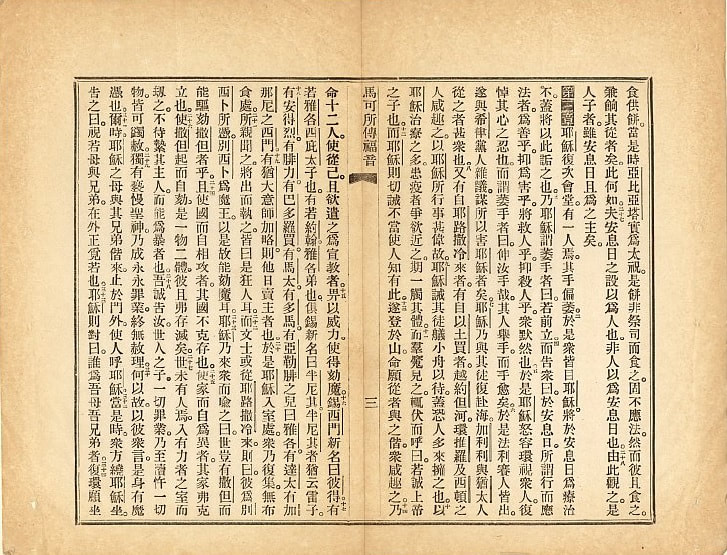 食供餅當是時亞比亞塔實為太祝是餅非祭司而食之固不應法然而彼且食之。
兼餉其從者矣此何如夫安息日之設以為人也非人以為安息日也由此觀之是
人子者雖安息日且為之主矣。
第三章耶穌復次會堂有一人焉其手偏萎於是眾皆目耶穌將於安息日為療治
不蓋將以此詬之也乃耶穌謂萎手者曰若前立而告眾曰於安息日所謂行而應
法者為善乎抑為害乎將救人乎抑殺人乎眾默然也於是耶穌怒容環視眾人復
悼其心之忍也而謂萎手者曰伸汝手哉其人舉手而手愈矣於是法利賽人皆出
遂與希律黨人雜議謀所以害耶穌者矣耶穌乃與其徒復赴海加利利與猶太人
從之者甚眾也又有自耶路撒冷來者有自以土買者越約但河環推羅及西頓之
人咸趣之以耶穌所行事甚偉故耶穌誡其徒艤小舟以待蓋恐人多來擁之也以
耶穌治療之多患疫者爭欲近之期一觸其體而羣魘見之輒伏而呼曰若誠上帝
之子也而耶穌則切誡不當使人知有此遂登於山命願從者與之偕眾咸趣之乃
馬可所傳福音 三
命十二人使從己且欲遣之為宣教者畀以威力使得劾魔錫西門新名曰彼得有
若雅各西庇太子也有若約翰雅各弟也俱錫新名曰半尼其半尼其者猶云雷子。
有安得烈有腓力有巴多羅買有馬太有多馬有亞勒腓之兒曰雅各有達太有加
那尼之西門有猶大意師加略則他日賣主者也於是耶穌入室處眾乃復集無布
食處所親聞之將出而執之皆曰是狂人耳而文士或從耶路撒冷來則曰彼為別
西卜所憑別西卜為魔王以是故能劾魔耳耶穌乃來眾而喻之曰世豈有撒但而
能驅劾撒但者乎且使國而自相攻者其國不克存也使家而自為異者其家弗克
立也使撒但起而自劾是一物二體彼且弗存滅矣世未有人焉入有力者之室而
刼之不待縶其主人而能為暴者也吾誠告汝世人之子一切罪業乃至瀆忤一切
物皆可蠲赦獨有褻慢聖神乃成永永罪業終無赦理所以故以彼眾言是身有魔
憑也爾時耶穌之母與其兄弟偕來止於門外使人呼耶穌當是時眾方繞耶穌坐。
告之曰視若母與兄弟在外正覓若也耶穌則對曰誰為吾母吾兄弟者復環顧坐